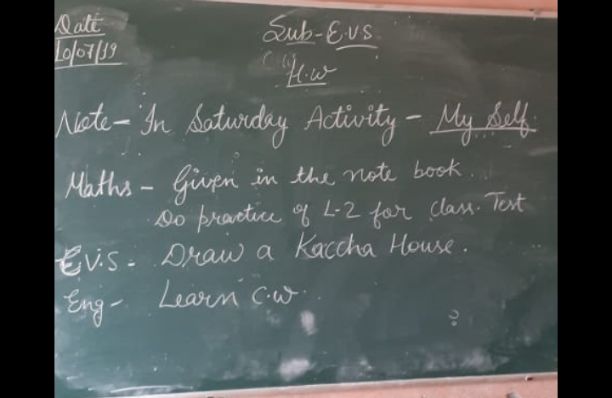 Date
10/07/19
Sub-E.V.S
H.W
Note- In Saturday Activity - My Self.
Maths - Given in the note book.
Do practice of L-2 for class. Test
E.V.S - Draw a Kaccha House.
Eng- Learn C.W.
?